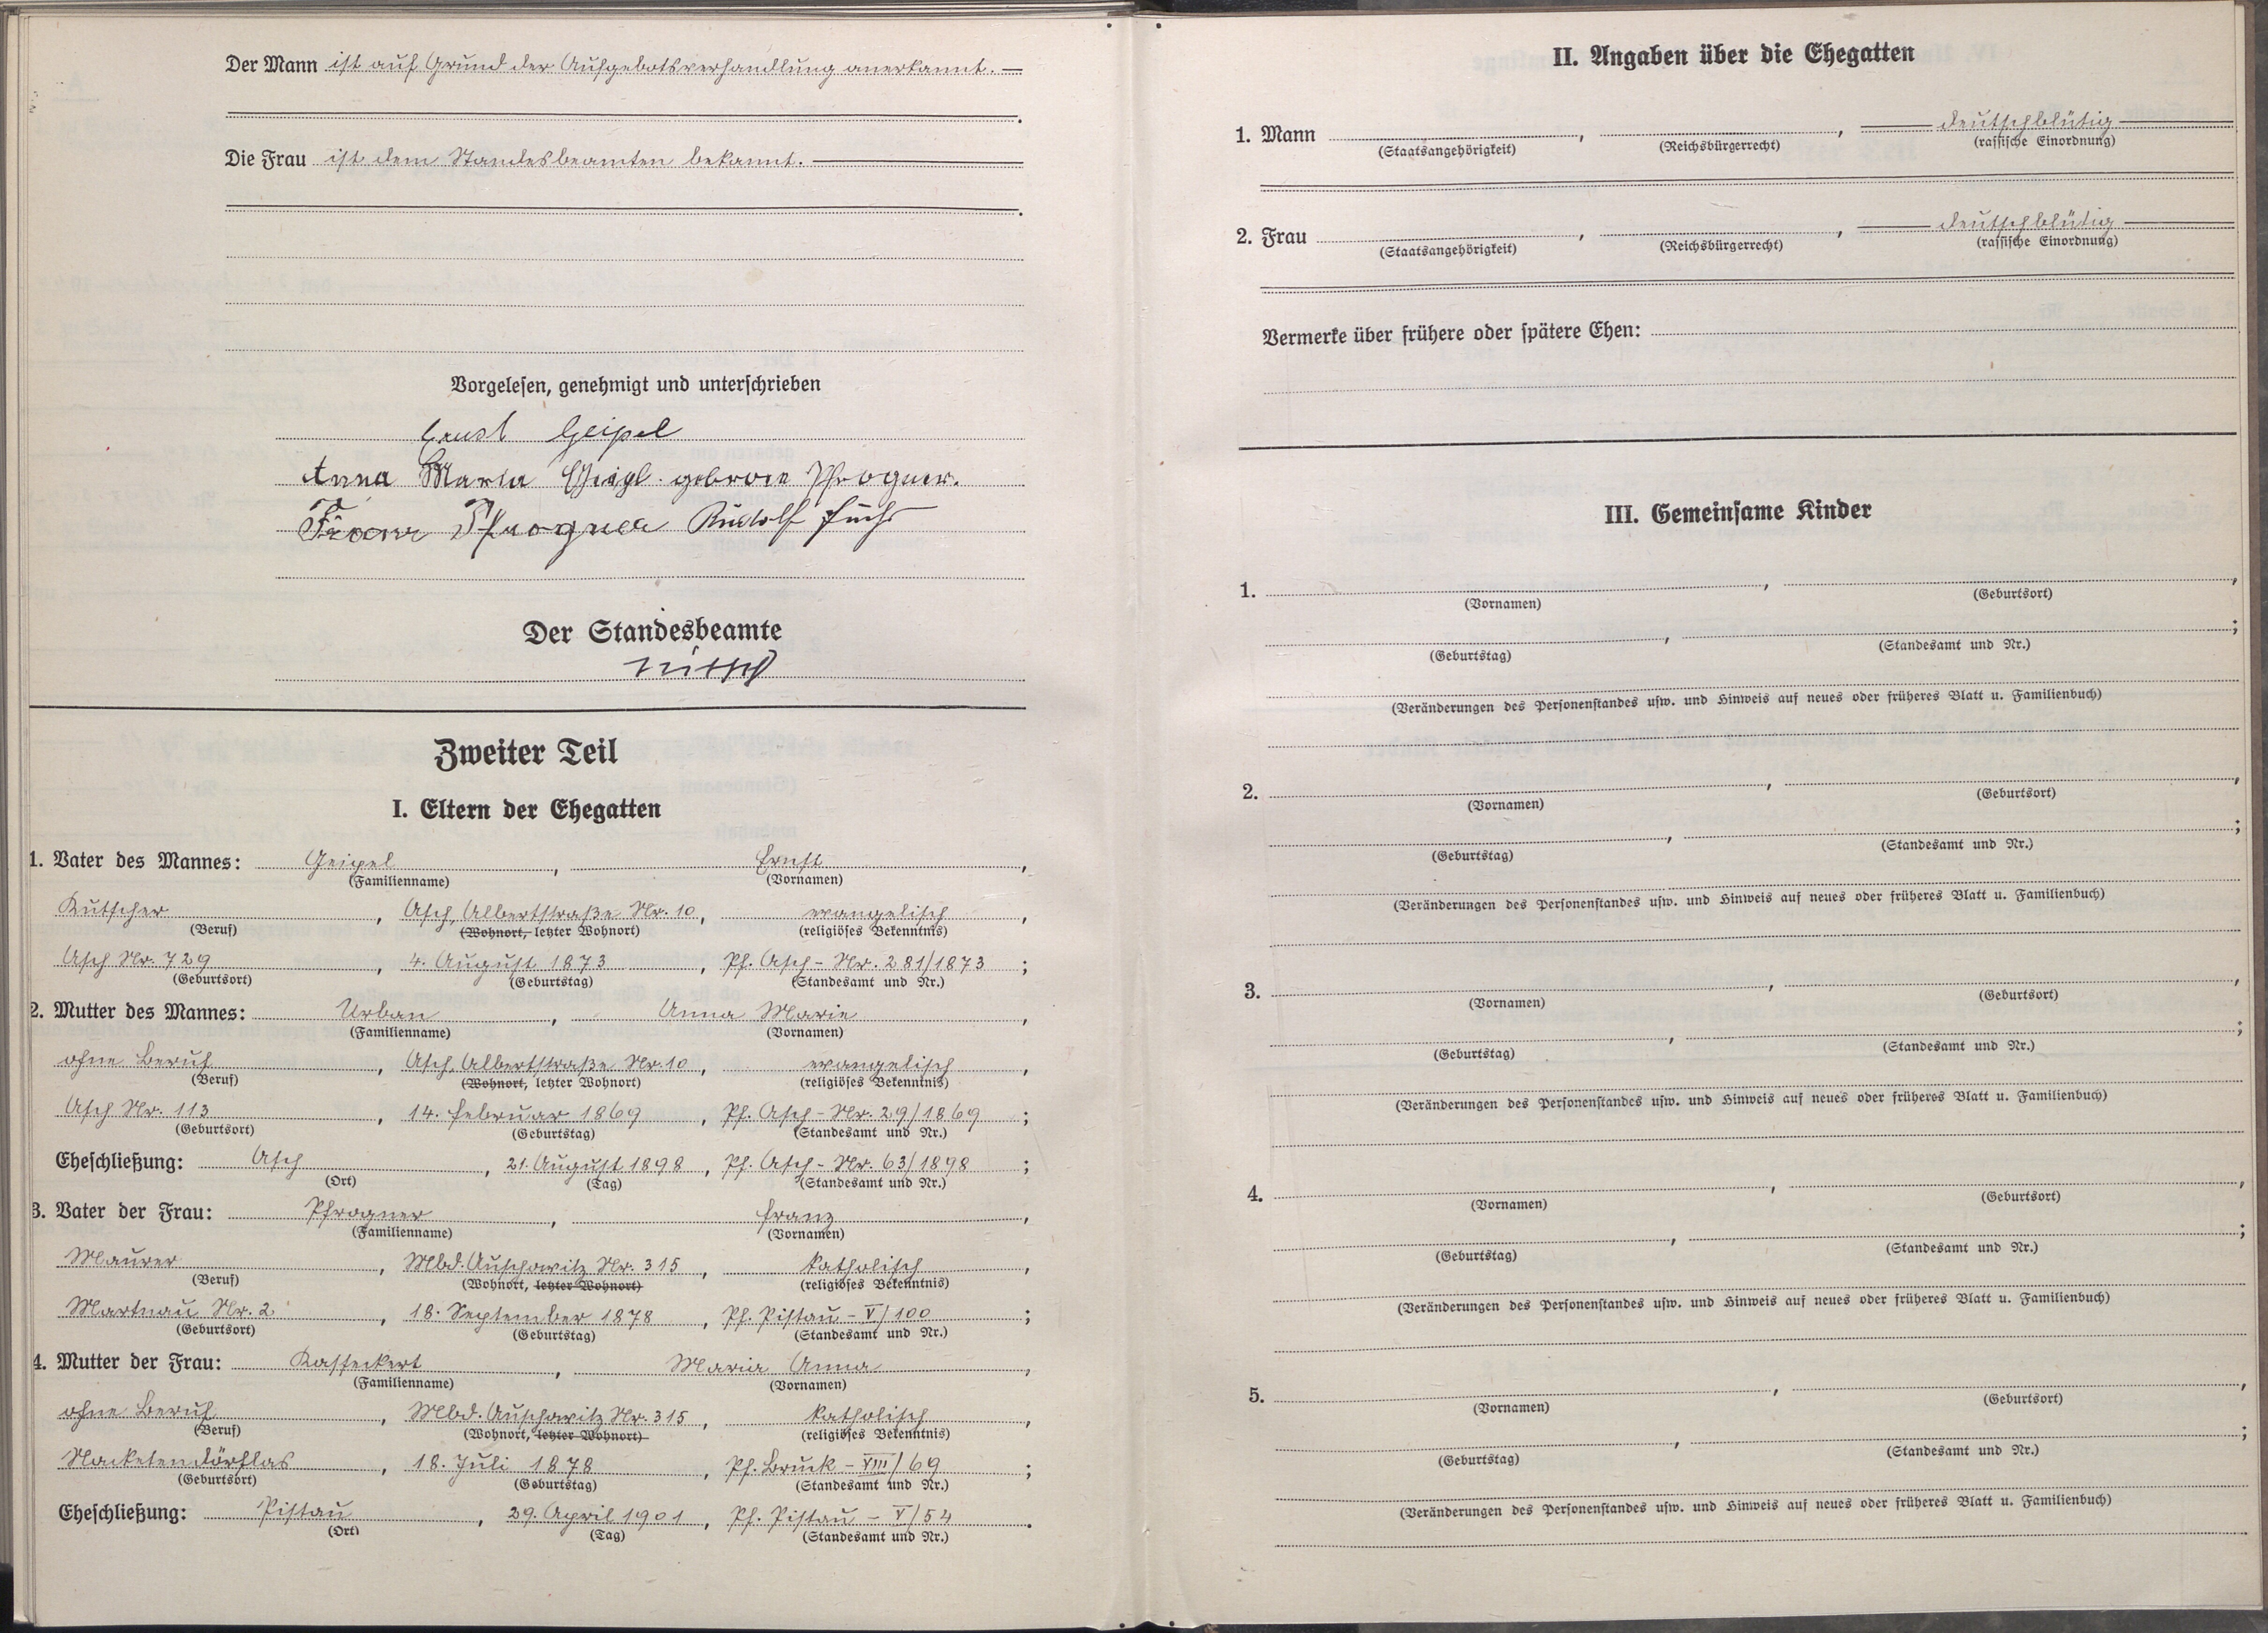 Der Mann ist auf Grund der Aufgebotsverhandlung anerkannt. —
Die Frau ist dem Standesbeamten bekannt.
Vorgelesen, genehmigt und unterschrieben
Ernst Geipel
Anna Maria geborne Pfrogner.
Franz Pfrogner Rudolf Fuchs
Der Standesbeamte
Zweiter Teil
I. Eltern der Ehegatten
1. Vater des Mannes: Geipel, Ernst,
(Familienname) (Vornamen)
Kutscher, Asch, Albertstraße Nr. 10, evangelisch,
(Beruf) (Wohnort, letzter Wohnort) (religiöses Bekenntnis)
Asch Nr. 729, 4. August 1873, Pf. Asch - Nr. 281/1873;
(Geburtsort) (Geburtstag) (Standesamt und Nr.)
2. Mutter des Mannes: Urban, Anna Marie,
(Familienname) (Vornamen)
ohne Beruf, Asch, Albertstraße Nr. 10, evangelisch,
(Beruf) (Wohnort, letzter Wohnort) (religiöses Bekenntnis)
Asch Nr. 113, 14. Februar 1869, Pf. Asch - Nr. 29/1869;
(Geburtsort) (Geburtstag) (Standesamt und Nr.)
Eheschließung: Asch, 21. August 1898, Pf. Asch - Nr. 63/1898;
(Ort) (Tag) (Standesamt und Nr.)
3. Vater der Frau: Pfrogner, Franz,
(Familienname) (Vornamen)
Maurer, Mbd. Auschowitz Nr. 315, katholisch,
(Beruf) (Wohnort, letzter Wohnort) (religiöses Bekenntnis)
Martnau Nr. 2, 18. September 1878, Pf. Pistau - V/100;
(Geburtsort) (Geburtstag) (Standesamt und Nr.)
4. Mutter der Frau: Kasseckert, Maria Anna,
(Familienname) (Vornamen)
ohne Beruf, Mbd. Auschowitz Nr. 315, katholisch,
(Beruf) (Wohnort, letzter Wohnort) (religiöses Bekenntnis)
Nacketendörflas, 18. Juli 1878, Pf. Bruck - VIII/69;
(Geburtsort) (Geburtstag) (Standesamt und Nr.)
Eheschließung: Pistau, 29. April 1901, Pf. Pistau - V/54.
(Ort) (Tag) (Standesamt und Nr.)
II. Angaben über die Ehegatten
1. Mann , , deutschblütig
(Staatsangehörigkeit) (Reichsbürgerrecht) (rassische Einordnung)
2. Frau , , deutschblütig
(Staatsangehörigkeit) (Reichsbürgerrecht) (rassische Einordnung)
Vermerke über frühere oder spätere Ehen:
III. Gemeinsame Kinder
1. , ,
(Vornamen) (Geburtsort)
, ;
(Geburtstag) (Standesamt und Nr.)
(Veränderungen des Personenstandes usw. und Hinweis auf neues oder früheres Blatt u. Familienbuch)
2. , ,
(Vornamen) (Geburtsort)
, ;
(Geburtstag) (Standesamt und Nr.)
(Veränderungen des Personenstandes usw. und Hinweis auf neues oder früheres Blatt u. Familienbuch)
3. , ,
(Vornamen) (Geburtsort)
, ;
(Geburtstag) (Standesamt und Nr.)
(Veränderungen des Personenstandes usw. und Hinweis auf neues oder früheres Blatt u. Familienbuch)
4. , ,
(Vornamen) (Geburtsort)
, ;
(Geburtstag) (Standesamt und Nr.)
(Veränderungen des Personenstandes usw. und Hinweis auf neues oder früheres Blatt u. Familienbuch)
5. , ,
(Vornamen) (Geburtsort)
, ;
(Geburtstag) (Standesamt und Nr.)
(Veränderungen des Personenstandes usw. und Hinweis auf neues oder früheres Blatt u. Familienbuch)